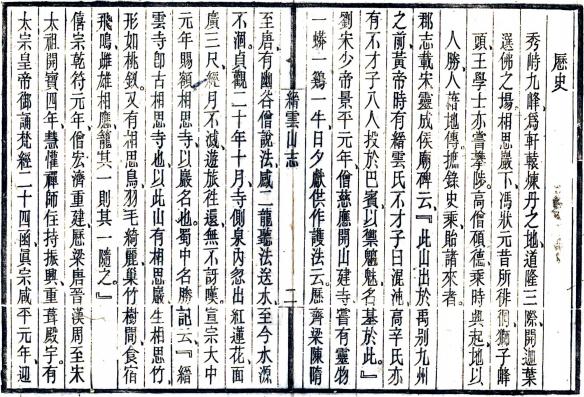 歷史
秀峙九峰、爲軒轅煉丹之地、道隆三際、開迦葉
選佛之場、相思巖下、馮狀元昔所徘徊、獅子峰
頭、王學士亦嘗攀陟。高僧碩德、乘時興起、地以
人勝、人藉地傳、摭錄史乘、貽諸來者。
郡志載宋靈成侯廟碑云、『此山出於禹別九州
之前、黃帝時有縉雲氏不才子曰混沌、高辛氏亦
有不才子八人、投於巴賨以禦魑魅、名基於此。』
劉宋少帝景平元年、僧慈應開山建寺、嘗有靈物
一蟒一鷄一牛、日夕獻供、作護法云。歷齊梁陳隋
縉雲山志
二
至唐、有幽谷僧說法、感二龍聽法、送水至今、水源
不涸。貞觀二十年十月、寺側泉內忽出紅蓮花、面
廣三尺、經月不滅、遊旅往還、無不訝嘆。宣宗大中
元年、賜額相思寺、以巖名也。蜀中名勝記云、『縉
雲寺卽古相思寺也、以此山有相思巖、生相思竹、
形如桃釵、又有相思鳥、羽毛綺麗、巢竹樹間、食宿
飛鳴、雌雄相應、籠其一則其一隨之。』
僖宗乾符元年、僧宏濟重建、歷梁唐晉漢周至宋
太祖開寶四年、慧懽禪師住持、振興重葺殿宇、有
太宗皇帝御誦梵經二十四函。眞宗咸平元年、迎